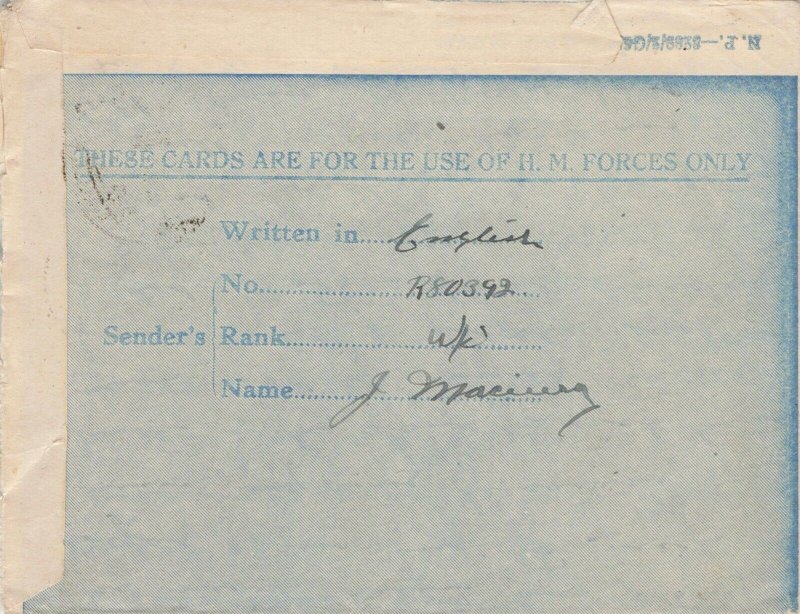 N. P.—8299/S/G
THESE CARDS ARE FOR THE USE OF H. M. FORCES ONLY
Written in.... English
No. R80392
Sender's Rank
Name J.